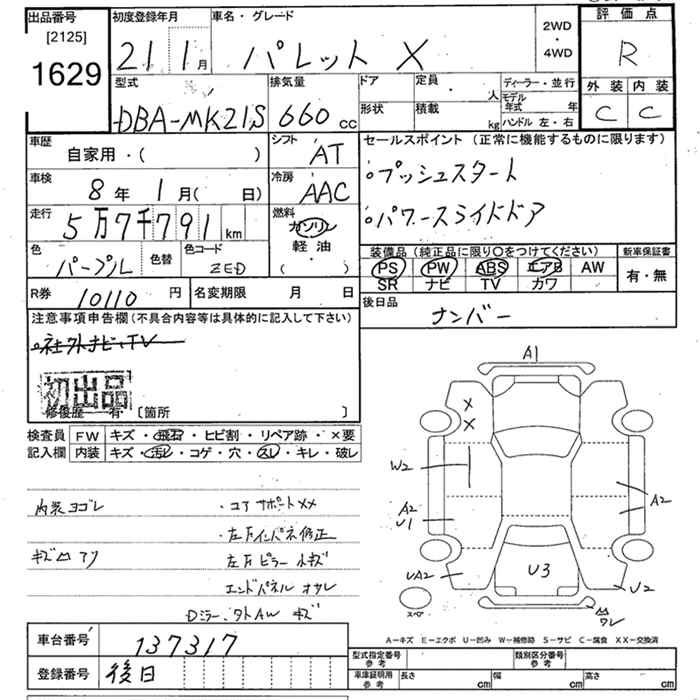 出品番号
[2125]
1629
初度登録年月
21 1月
車名・グレード
パレット X
2WD
・
4WD
評価点
R
外装 内装
C C
型式
DBA-MK21S
排気量
660 cc
ドア
形状
定員 人
積載 kg
ディーラー・並行
モデル年式 年
ハンドル 左・右
車歴
自家用・( )
シフト
AT
セールスポイント (正常に機能するものに限ります)
。プッシュスタート
。パワースライドドア
車検
8年 1月( 日)
冷房
AAC
走行
5万7千791 km
燃料
ガソリン
軽油
( ・ )
色
パープル
色替
色コード
ZED
装備品 (純正品に限り○をつけてください)
PS PW ABS エアB AW
SR ナビ TV カワ
新車保証書
有・無
R券 10110 円
名変期限 月 日
後日品
ナンバー
注意事項申告欄(不具合内容等は具体的に記入して下さい)
。社外ナビ・TV
初出品
修復歴 有・[箇所 ]
検査員
記入欄
FW キズ・飛石・ヒビ割・リペア跡・×要
内装 キズ・汚レ・コゲ・穴・スレ・キレ・破レ
内装ヨゴレ
・コアサポートXX
・左右インパネ修正
キズ凹アリ
左右ピラー 小キズ
エンドパネル オサレ
Dミラー,外AW キズ
A1
X
X
W2
A2
U1
A2
UA2
U3
U2
スペア
凹
ワレ
A－キズ E－エクボ U－凹み W－補修跡 S－サビ C－腐食 XX－交換済
車台番号 137317
登録番号 後日
型式指定番号
参考
類別区分番号
参考
車庫証明用
参考
長さ cm
幅 cm
高さ cm